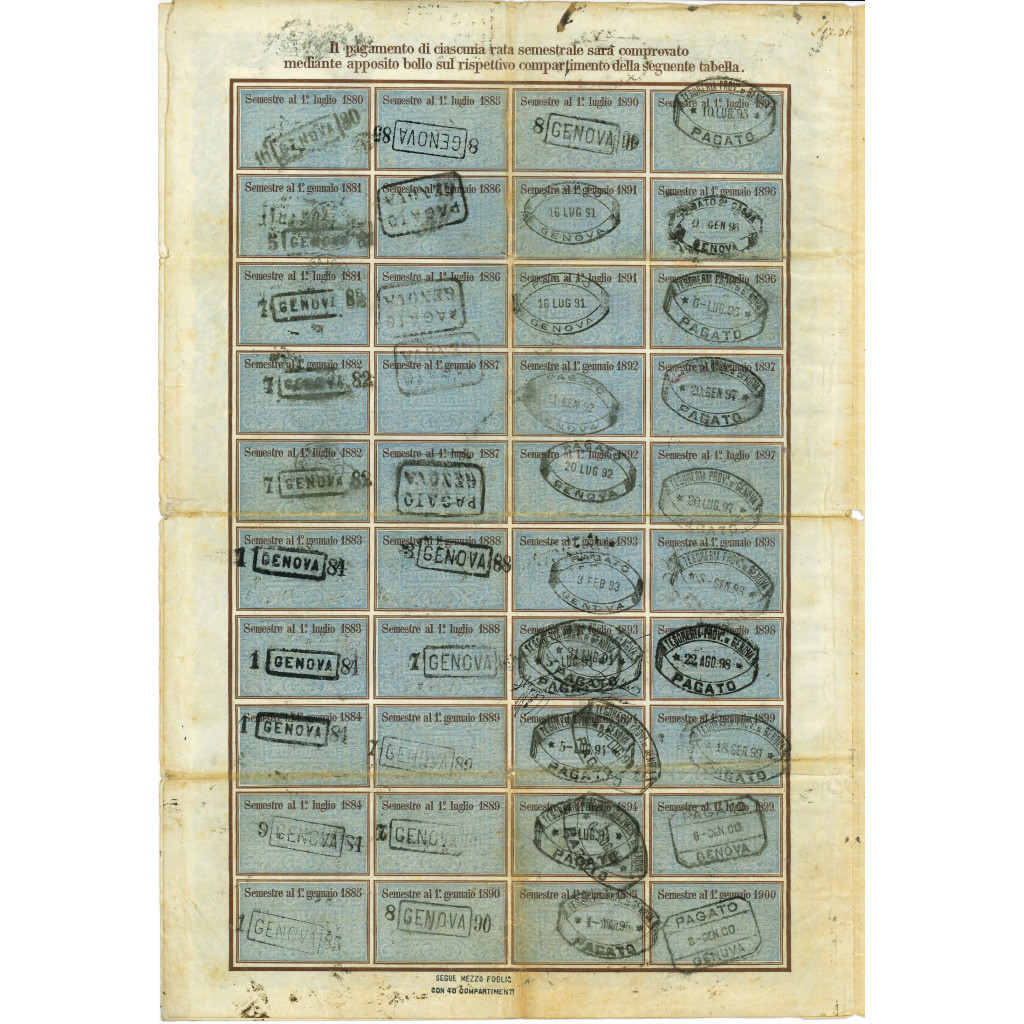 Il pagamento di ciascuna rata semestrale sarà comprovato
mediante apposito bollo sul rispettivo compartimento della seguente tabella.
Semestre al 1º. luglio 1880
GENOVA
Semestre al 1º. luglio 1885
8 GENOVA 85
Semestre al 1º. luglio 1890
8 GENOVA 90
Semestre al 1º. luglio
TESORERIA PROV. DI GENOVA
10 LUG. 95
PAGATO
Semestre al 1º. gennaio 1881
5 GENOVA
Semestre al 1º. gennaio 1886
PAGATO
GENOVA
Semestre al 1º. gennaio 1891
16 LUG 91
GENOVA
Semestre al 1º. gennaio 1896
GEN 96
GENOVA
Semestre al 1º. luglio 1881
7 GENOVA
Semestre al 1º. luglio 1886
PAGATO
GENOVA
Semestre al 1º. luglio 1891
16 LUG 91
GENOVA
Semestre al 1º. luglio 1896
6-LUG.96
PAGATO
Semestre al 1º. gennaio 1882
7 GENOVA 82
Semestre al 1º. gennaio 1887
GENOVA
Semestre al 1º. gennaio 1892
GEN 92
GENOVA
Semestre al 1º. gennaio 1897
20.GEN.97
PAGATO
Semestre al 1º. luglio 1882
7 GENOVA 82
Semestre al 1º. luglio 1887
PAGATO
GENOVA
Semestre al 1º. luglio 1892
PAGATO
20 LUG 92
GENOVA
Semestre al 1º. luglio 1897
TESORERIA PROV. DI GENOVA
20 LUG. 97
PAGATO
Semestre al 1º. gennaio 1883
1 GENOVA 84
Semestre al 1º. gennaio 1888
GENOVA 88
Semestre al 1º. gennaio 1893
PAGATO
3 FEB 93
GENOVA
Semestre al 1º. gennaio 1898
TESORERIA PROV. DI GENOVA
Semestre al 1º. luglio 1883
1 GENOVA 84
Semestre al 1º. luglio 1888
7 GENOVA
Semestre al 1º. luglio 1893
PAGATO
Semestre al 1º. luglio 1898
TESORERIA PROV. DI GENOVA
22 AGO.98
PAGATO
Semestre al 1º. gennaio 1884
1 GENOVA 84
Semestre al 1º. gennaio 1889
7 GENOVA 89
Semestre al 1º. gennaio
TESORERIA PROV. DI GENOVA
5-LUG.94
PAGATO
Semestre al 1º. gennaio 1899
18 GEN. 99
PAGATO
Semestre al 1º. luglio 1884
9 GENOVA 84
Semestre al 1º. luglio 1889
7 GENOVA
Semestre al 1º. luglio 1894
PAGATO
Semestre al 1º. luglio 1899
PAGATO
8-GEN.00
GENOVA
Semestre al 1º. gennaio 1885
1 GENOVA 85
Semestre al 1º. gennaio 1890
8 GENOVA 90
Semestre al 1º. gennaio 1895
PAGATO
Semestre al 1º. gennaio 1900
PAGATO
8-GEN.00
GENOVA
SEGUE MEZZO FOGLIO
CON 40 COMPARTIMENTI